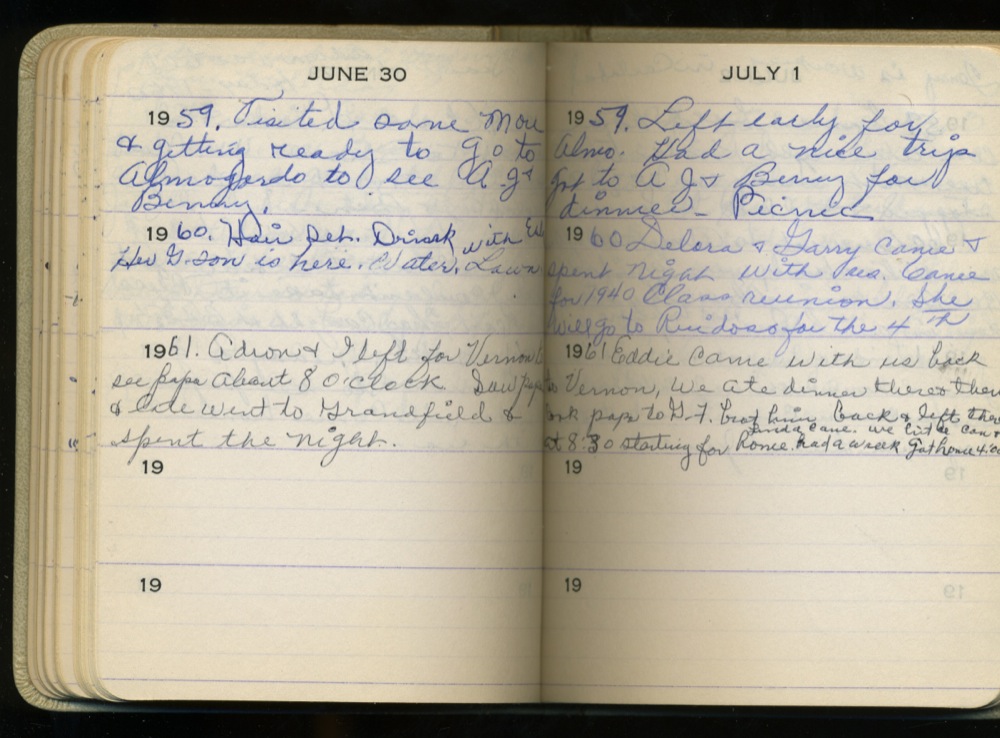 JUNE 30
1959. Visited some more
& getting ready to go to
Almogordo to see A J &
Benny.
1960. Hair set. Drink with
Her G. son is here. Water. Lawn
1961. Adron & I left for Vernon to
see papa about 8 o'clock. Saw papa
& went to Grandfield &
spent the night.
19
19
JULY 1
1959. Left early for
Almo. Had a nice trip
got to A J & Benny for
dinner - Picnic
1960 Delora & Garry came &
spent night with us. Came
for 1940 Class reunion. She
will go to Ruidoso for the 4th
1961 Eddie came with us back
to Vernon, We ate dinner there & then
papa to G. F. him back & left there
Linda came. we
at 8:30 starting for home. had a wreck Got home 4:00
19
19